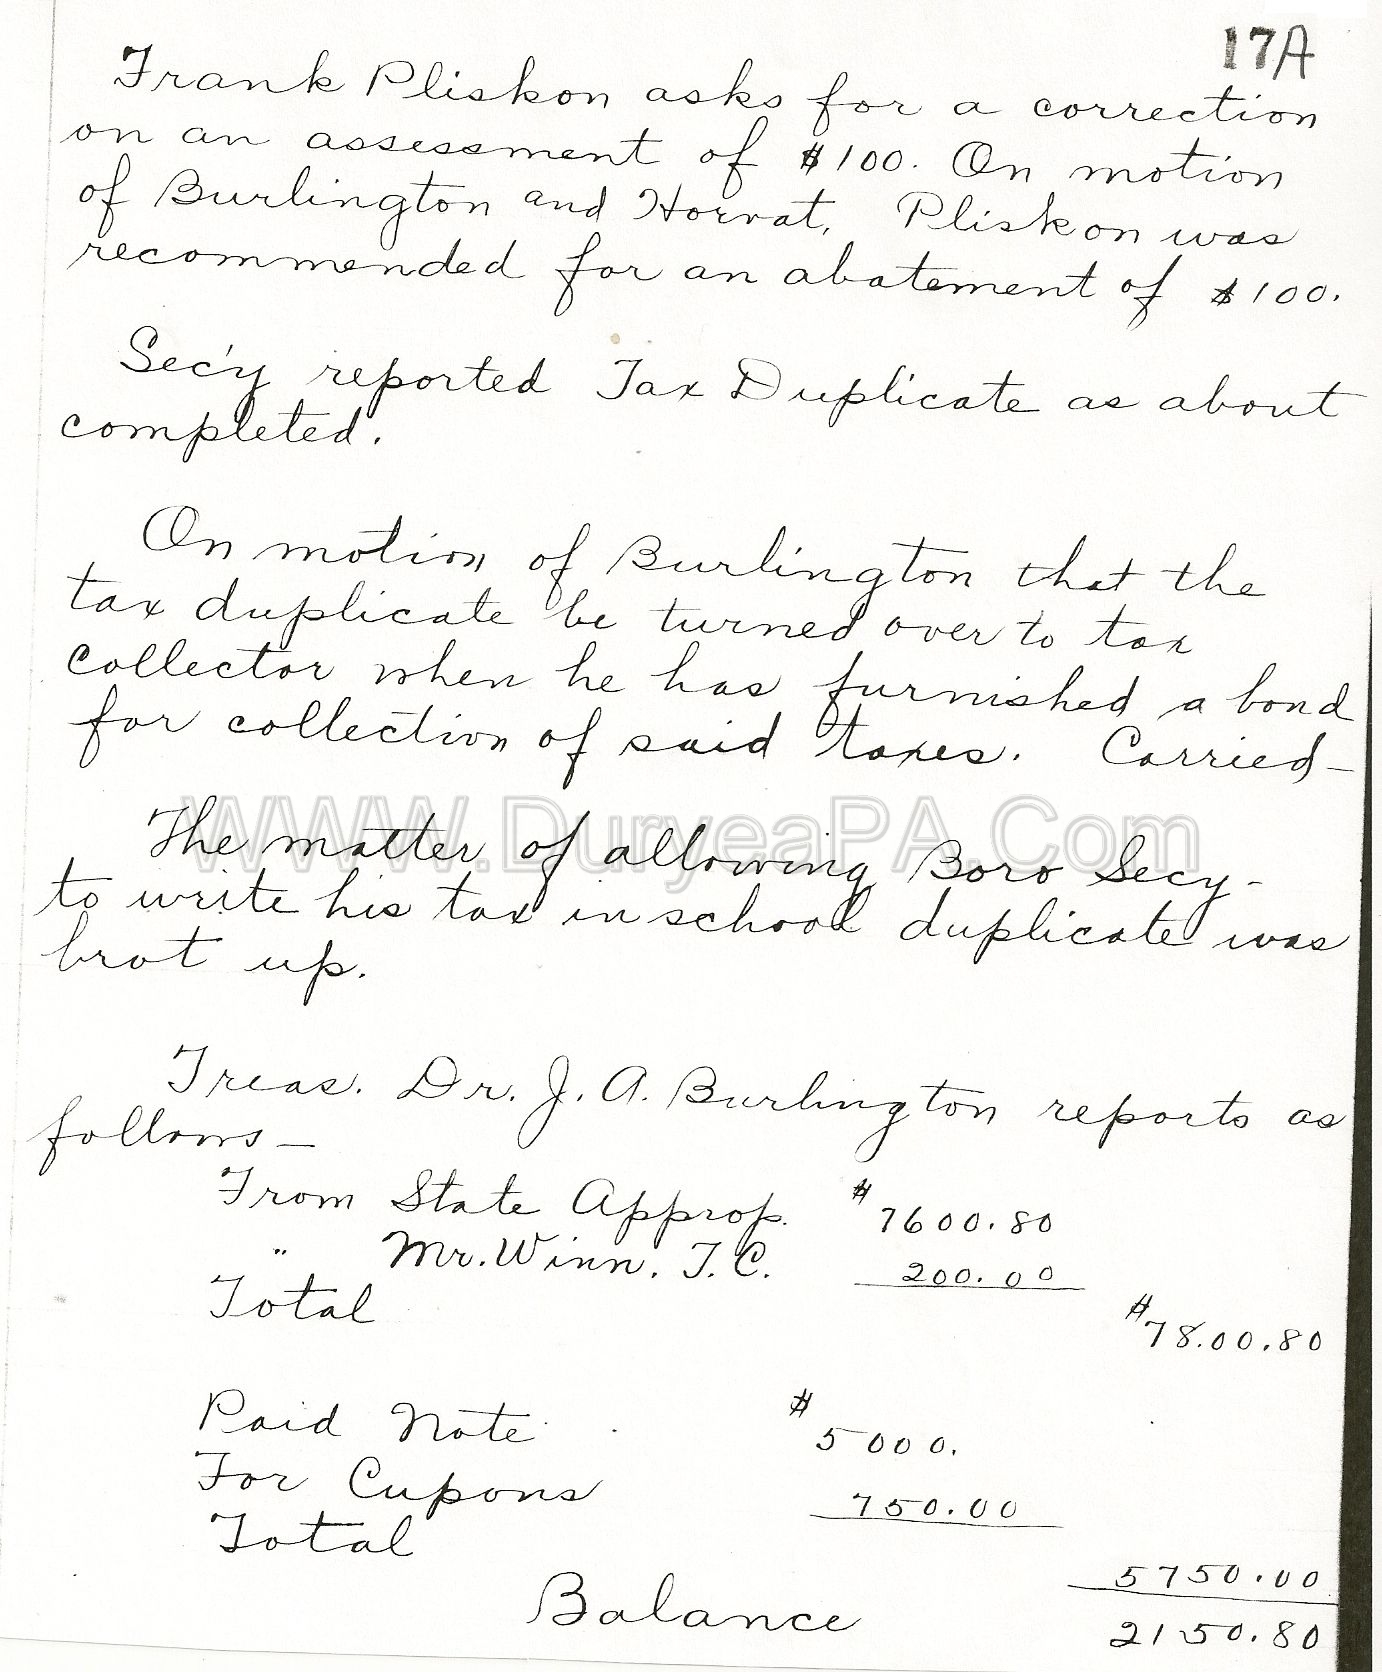 17A
Frank Pliskon asks for a correction
on an assessment of $100. On motion
of Burlington and Horvat, Pliskon was
recommended for an abatement of $100.
Sec'y reported Tax Duplicate as about
completed.
On motion of Burlington that the
tax duplicate be turned over to tax
collector when he has furnished a bond
for collection of said taxes. Carried—
WWW.DuryeaPA.Com
The matter of allowing Boro Secy-
to write his tax in school duplicate was
brot up.
Treas. Dr. J. A. Burlington reports as
follows—
From State Approp. $7600.80
" Mr. Winn. T.C. 200.00
Total $78.00.80
Paid Note $5000.
For Cupons 750.00
Total 5750.00
Balance 2150.80